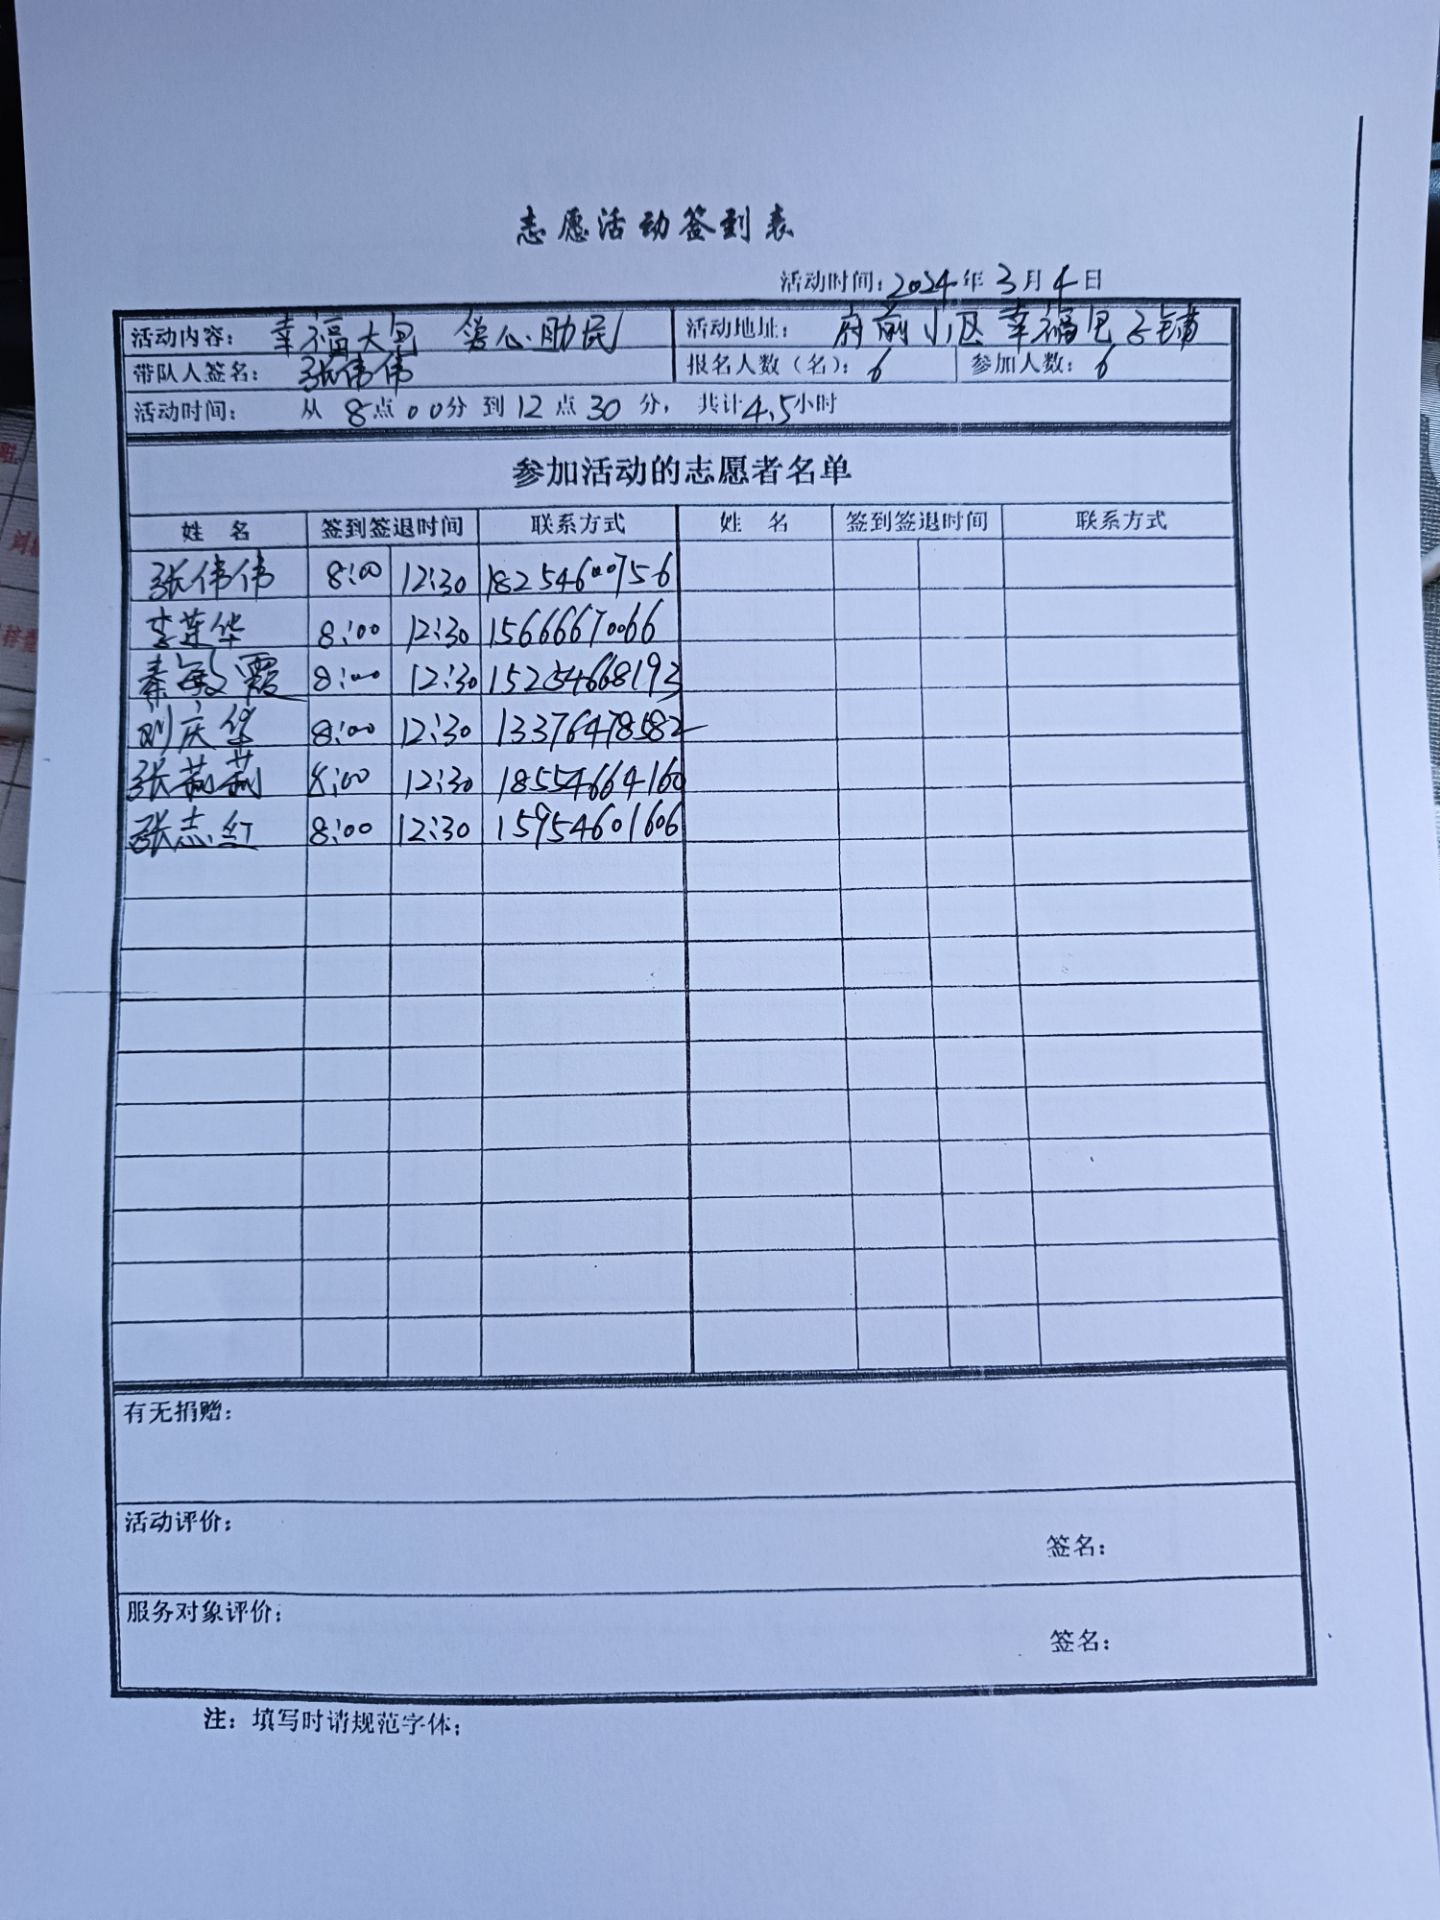 志愿活动签到表
活动时间：2024年3月4日
活动内容： 幸福大包 爱心助民 活动地址： 府前小区幸福包子铺
带队人签名： 张伟伟 报名人数（名）：6 参加人数：6
活动时间： 从 8点00分 到12点30分， 共计4.5小时
参加活动的志愿者名单
姓 名 签到签退时间 联系方式 姓 名 签到签退时间 联系方式
张伟伟 8:00 12:30 18254600756
李莲华 8:00 12:30 15666670066
秦敏霞 8:00 12:30 15254668193
刘庆华 8:00 12:30 13376478582
张莉莉 8:00 12:30 18554664160
张志红 8:00 12:30 15954601606
有无捐赠：
活动评价：
签名：
服务对象评价：
签名：
注：填写时请规范字体；